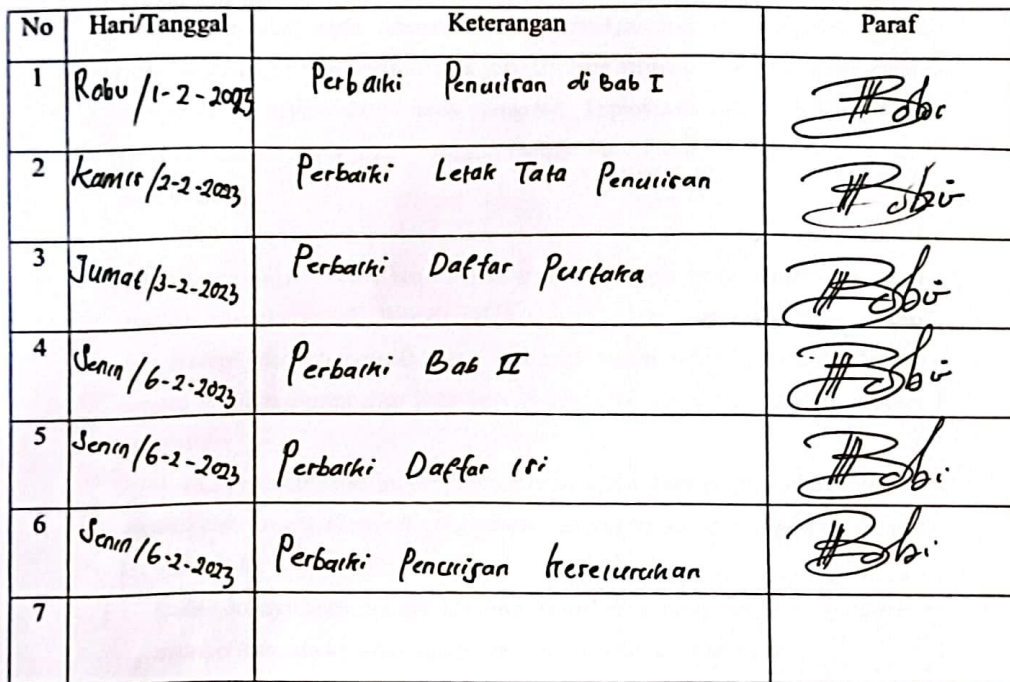 No Hari/Tanggal Keterangan Paraf
1 Rabu / 1-2-2023 Perbaiki Penulisan di Bab I Bobi
2 Kamis / 2-2-2023 Perbaiki Letak Tata Penulisan Bobi
3 Jumat / 3-2-2023 Perbaiki Daftar Pustaka Bobi
4 Senin / 6-2-2023 Perbaiki Bab II Bobi
5 Senin / 6-2-2023 Perbaiki Daftar isi Bobi
6 Senin / 6-2-2023 Perbaiki Penulisan keseluruhan Bobi
7